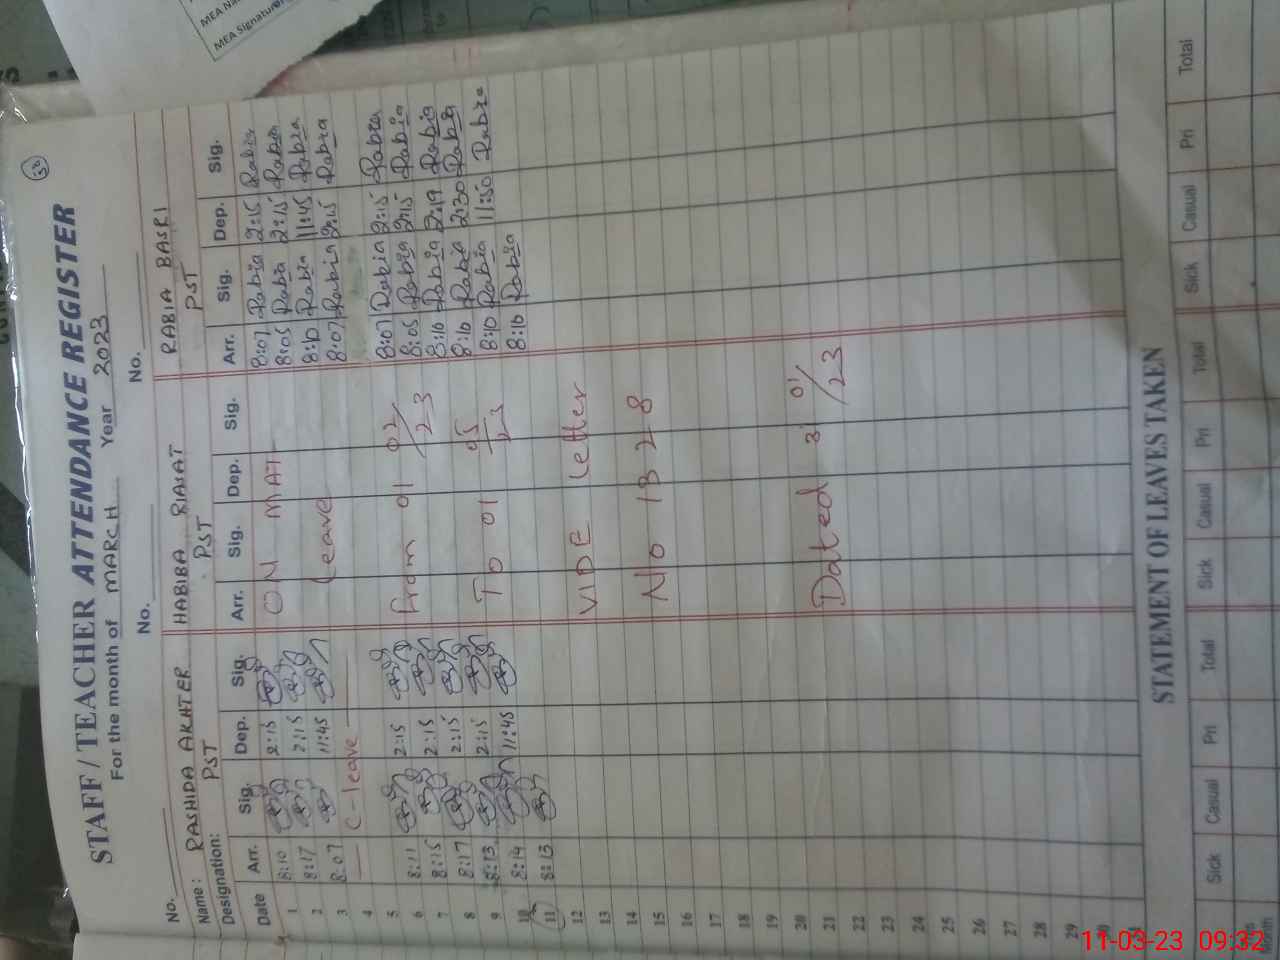 MEA Signature
STAFF / TEACHER ATTENDANCE REGISTER
For the month of MARCH Year 2023
No. No. No.
Name: RASHIDA AKHTER HABIBA RIASAT RABIA BASRI
Designation: PST PST PST
Date Arr. Sig. Dep. Sig. Arr. Sig. Dep. Sig. Arr. Sig. Dep. Sig.
1 8:10 2:15 ON MAT 8:07 Rabia 2:15 Rabia
2 8:17 2:15 8:05 Rabia 2:15 Rabia
3 8:07 11:45 Leave 8:10 Rabia 11:45 Rabia
4 C-leave 8:07 Rabia 2:15 Rabia
5
6 8:11 2:15 From 01 02/23 8:07 Rabia 2:15 Rabia
7 8:15 2:15 8:05 Rabia 2:15 Rabia
8 8:17 2:15 8:10 Rabia 2:19 Rabia
9 8:13 2:15 To 01 05/23 8:10 Rabia 2:30 Rabia
10 8:14 11:45 8:10 Rabia 11:50 Rabia
11 8:13 8:10 Rabia
12 VIDE Letter
13
14
15 No 1328
16
17
18
19
20
21 Dated 31 01/23
22
23
24
25
26
27
28
29
30
31
STATEMENT OF LEAVES TAKEN
Sick Casual Pri Total Sick Casual Pri Total Sick Casual Pri Total
11-03-23 09:32